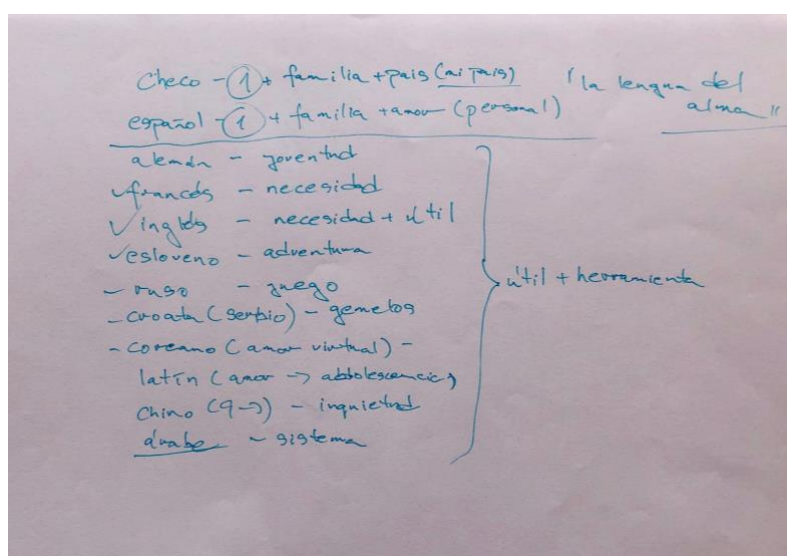 Checo - 1 + familia + pais (mi pais) "la lengua del
español - 1 + familia + amor (personal) alma"
alemán - joventud
✓francés - necesidad
✓inglés - necesidad + útil
✓esloveno - adventura
- ruso - juego útil + herramienta
- croata (serbio) - gemelos
- coreano (amor virtual) -
latín (amor → abdolescencia)
chino (9→) - inquietud
árabe - sistema